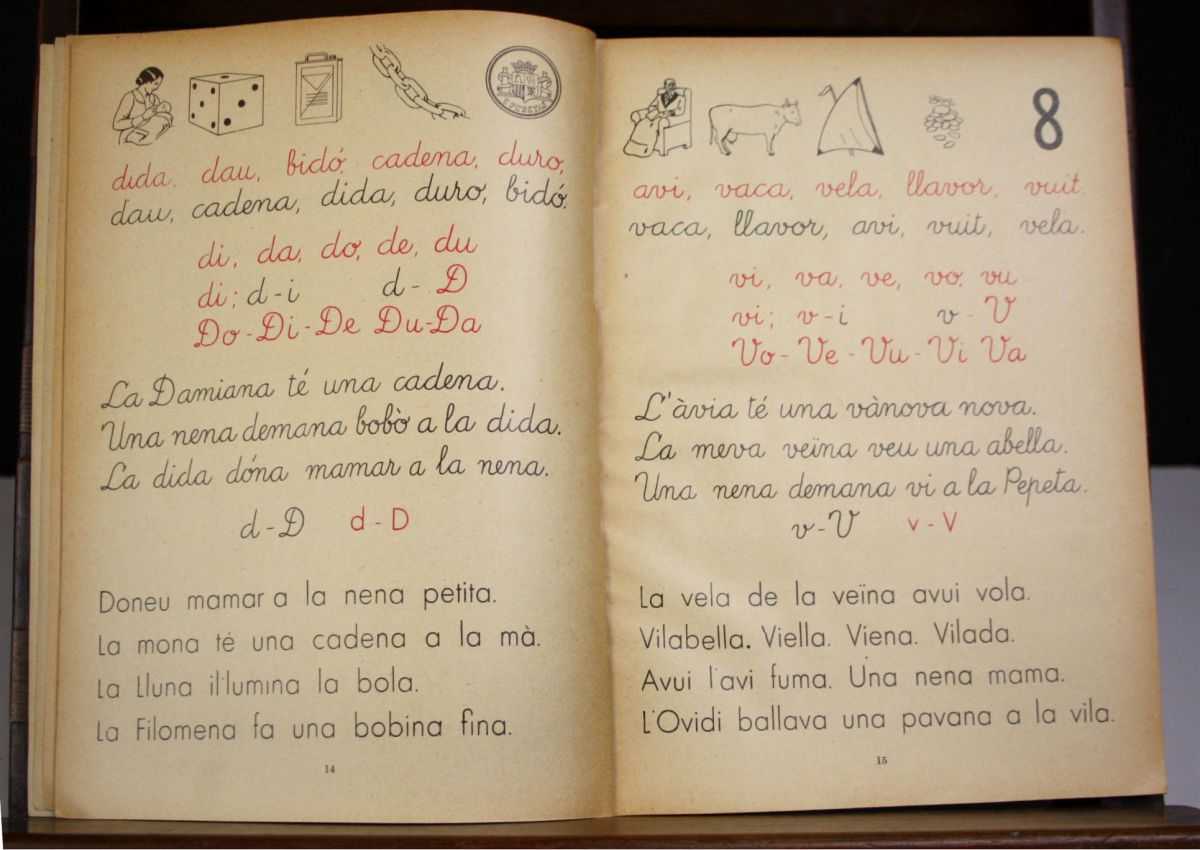 dida, dau, bidó, cadena, duro,
dau, cadena, dida, duro, bidó.
di, da, do, de, du
di; d-i d- D
Do-Di-De Du-Da
La Damiana té una cadena.
Una nena demana bobò a la dida.
La dida dóna mamar a la nena.
d-D d-D
Doneu mamar a la nena petita.
La mona té una cadena a la mà.
La Lluna il·lumina la bola.
La Filomena fa una bobina fina.
14
8
avi, vaca, vela, llavor, vuit.
vaca, llavor, avi, vuit, vela.
vi, va, ve, vo, vu
vi; v-i v-V
Vo-Ve-Vu-Vi Va
L'àvia té una vànova nova.
La meva veïna veu una abella.
Una nena demana vi a la Pepeta.
v-V v-V
La vela de la veïna avui vola.
Vilabella. Viella. Viena. Vilada.
Avui l'avi fuma. Una nena mama.
L'Ovidi ballava una pavana a la vila.
15